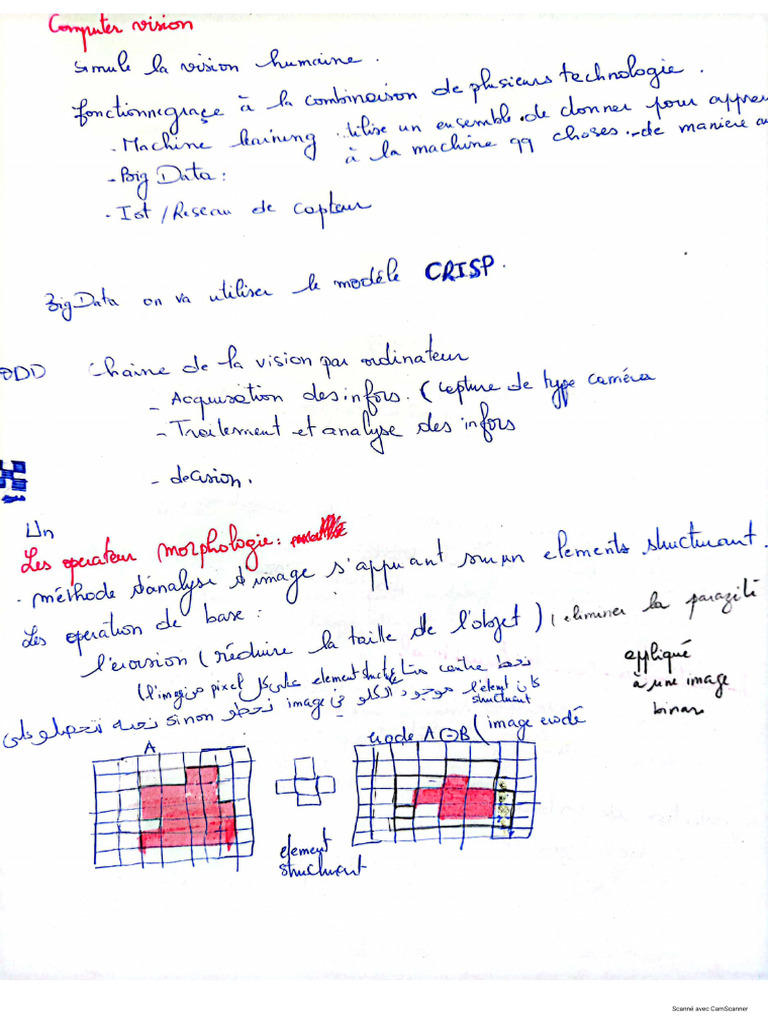 Computer vision
Simule la vision humaine.
fonctionne grace à la combinaison de plusieurs technologie.
- Machine learning utilise un ensemble de donner pour appren
à la machine qq choses - de maniere au
- Big Data :
- Iot / Reseau de capteur
Big Data on va utiliser le modèle CRISP.
ODD Chaine de la vision par ordinateur
- Acquisation des infors. (capture de type caméra
- Traitement et analyse des infors
- decision.
Un
Les operateur morphologie :
. méthode d'analyse d'image s'appuant sur un elements structurant.
Les operation de base :
l'érosion (réduire la taille de l'objet) (eliminer la parazité
appliqué
à une image
binar
نحط centre متاع element structu على كل pixel من l'image)
كان l'élement structuant موجود الكلو في image نحطو sinon نحيه
A
erode A⊖B (image erodé
element
structurant
Scanné avec CamScanner